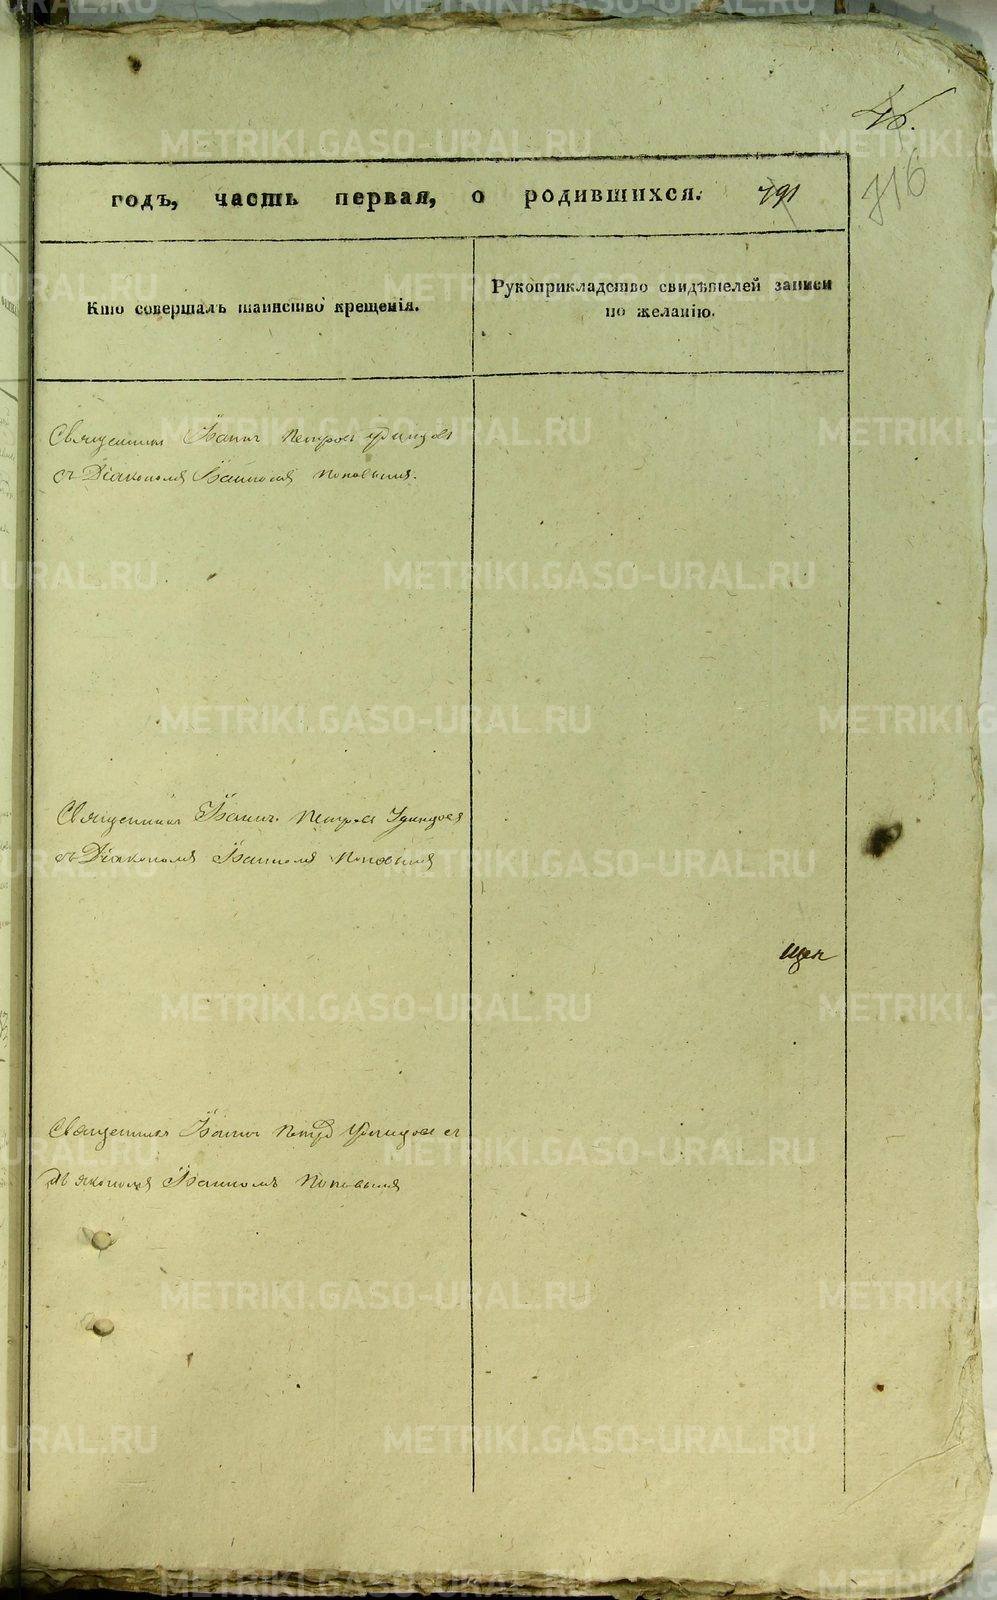 46.
716
годъ, часть первая, о родившихся. 491
Кто совершалъ таинство крещенія.
Рукоприкладство свидѣтелей записи
по желанію.
Священникъ Іоаннъ Петровъ Удинцовъ
съ Діакономъ Іоанномъ Поповымъ.
Священникъ Іоаннъ Петровъ Удинцовъ
съ Діакономъ Іоанномъ Поповымъ
Священникъ Іоаннъ Петровъ Удинцовъ съ
Діакономъ Іоанномъ Поповымъ
METRIKI.GASO-URAL.RU